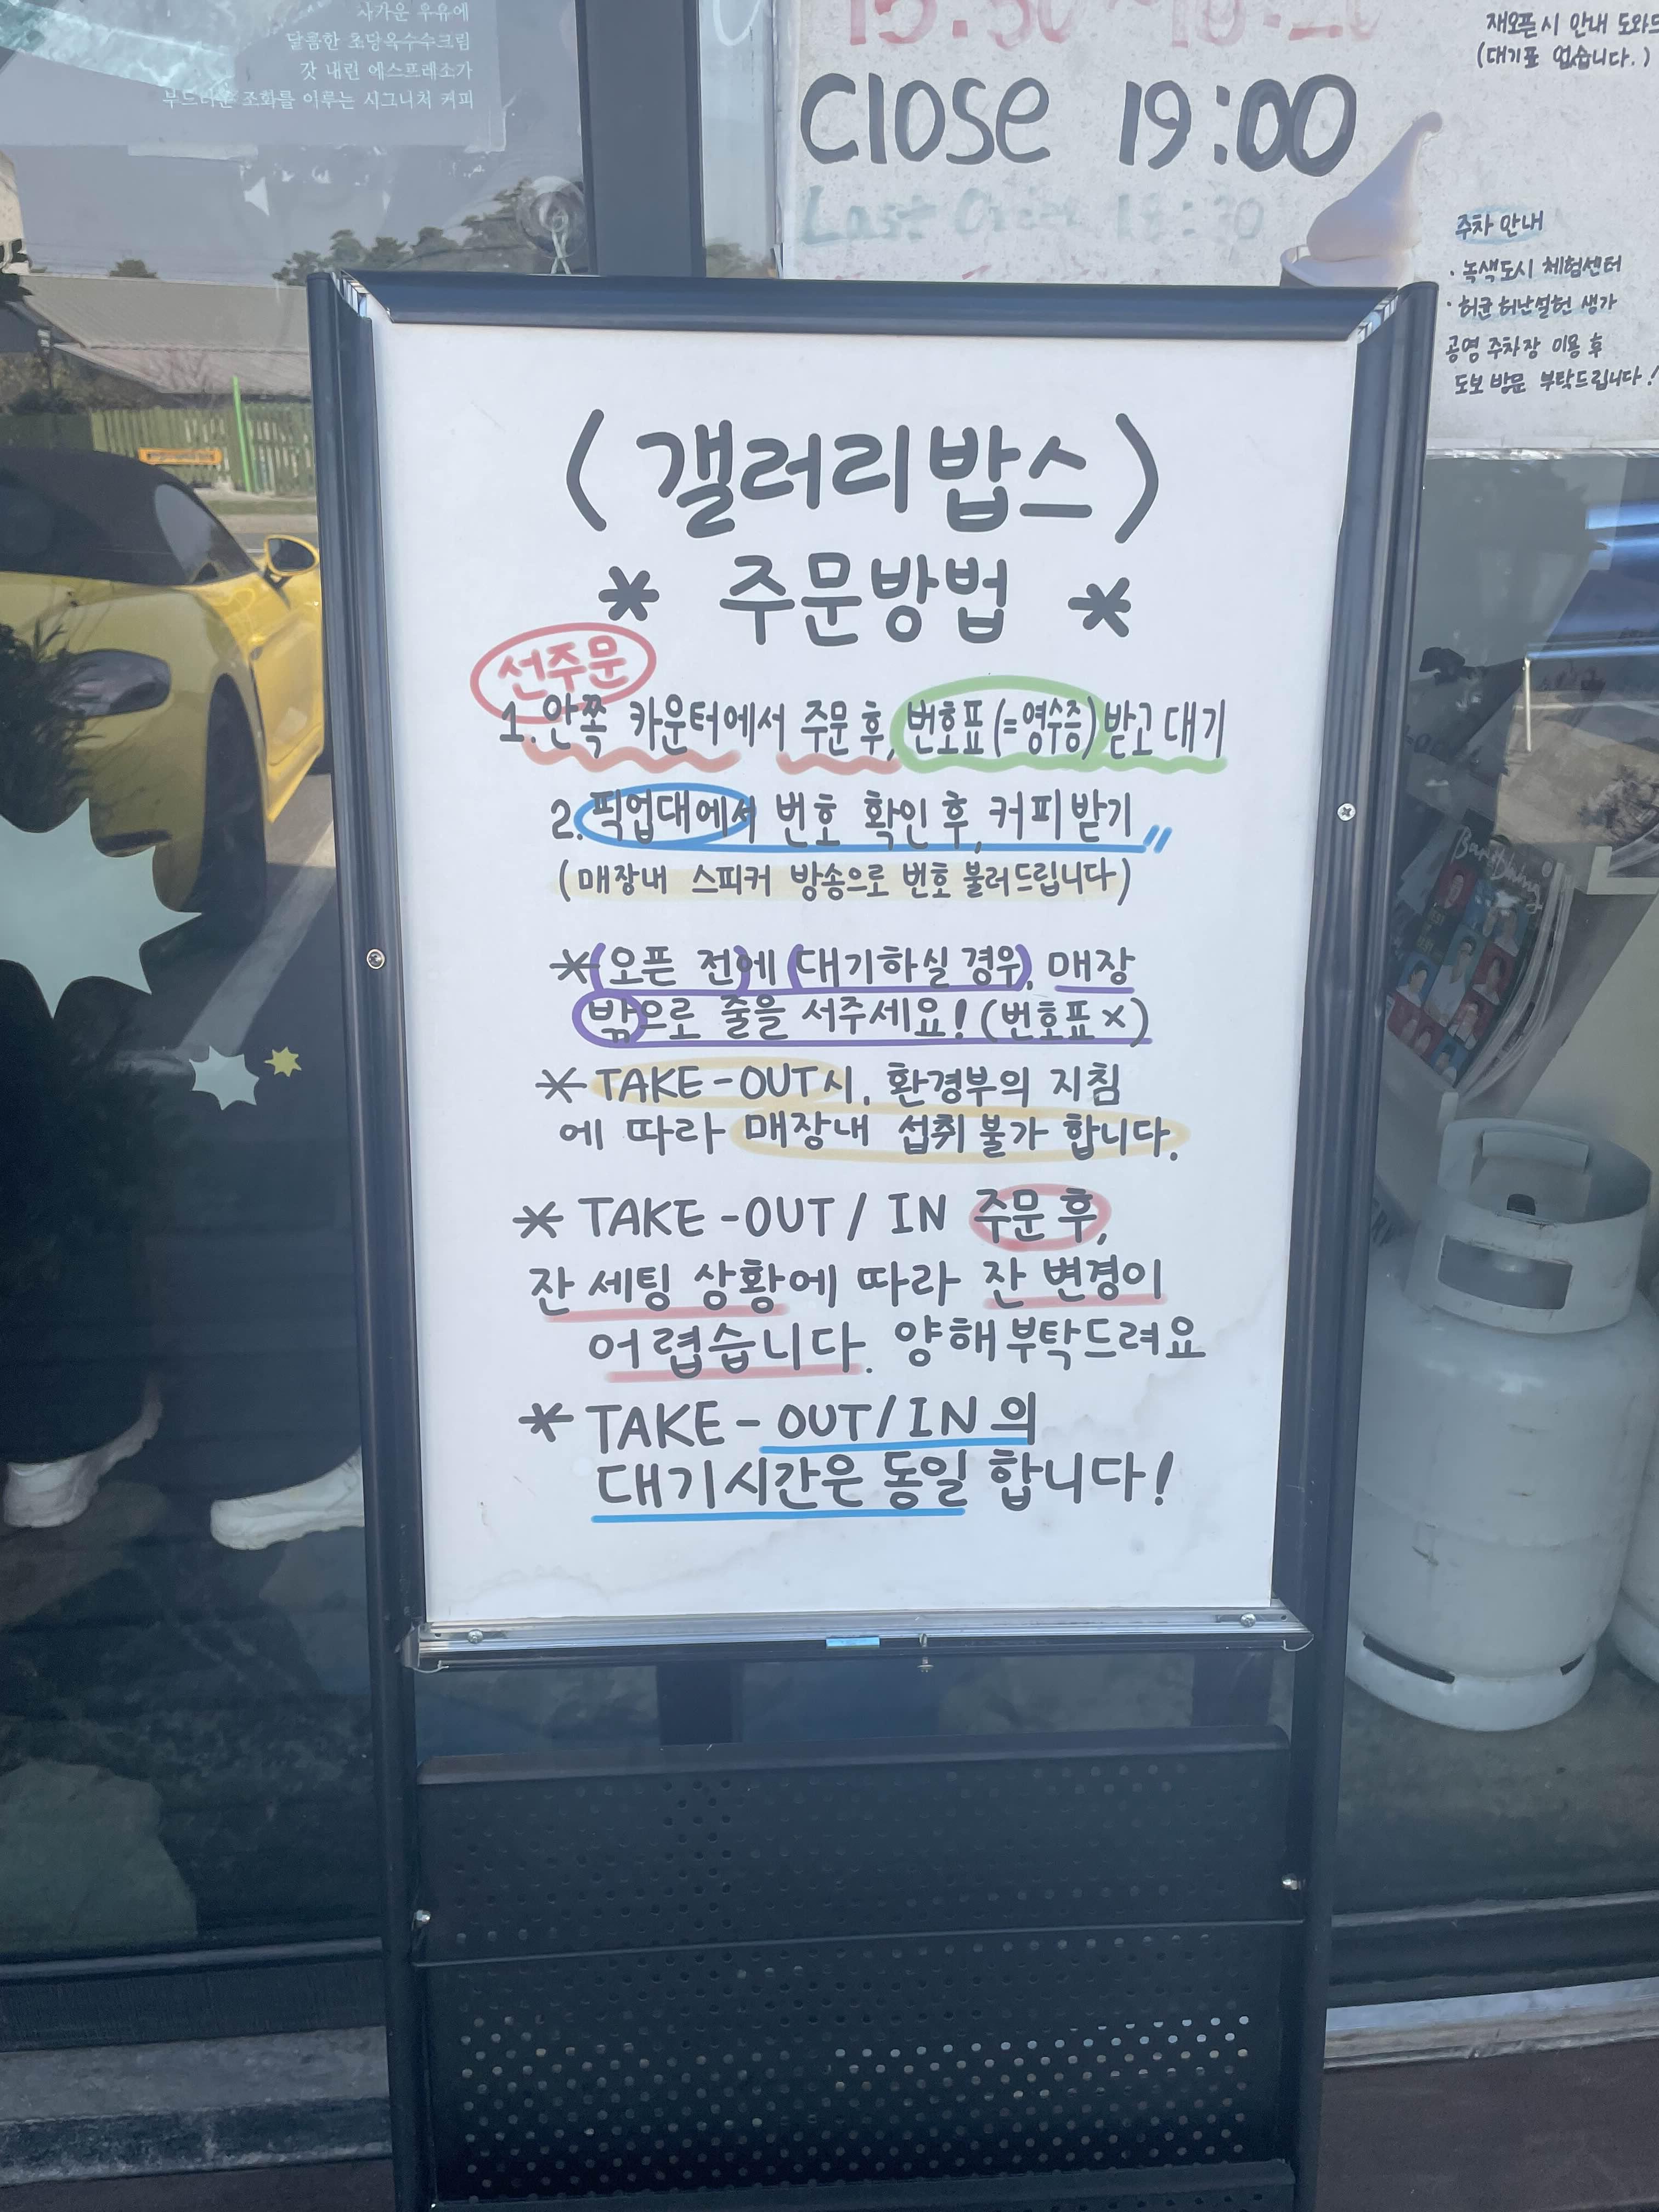 사가운 우유에
달콤한 초당옥수수크림
갓 내린 에스프레소가
부드러운 조화를 이루는 시그니처 커피
close 19:00
Last Order 18:30
재오픈시 안내 도와드
(대기표 없습니다.)
주차 안내
· 녹색도시 체험센터
· 허균허난설헌 생가
공영 주차장 이용 후
도보 방문 부탁드립니다!
〈갤러리밥스〉
* 주문방법 *
선주문
1. 안쪽 카운터에서 주문 후, 번호표(=영수증) 받고 대기
2. 픽업대에서 번호 확인 후, 커피 받기
(매장내 스피커 방송으로 번호 불러드립니다)
* (오픈 전)에 (대기하실 경우), 매장
밖으로 줄을 서주세요! (번호표 x)
* TAKE-OUT시, 환경부의 지침
에 따라 매장내 섭취 불가 합니다.
* TAKE-OUT / IN 주문 후,
잔 세팅 상황에 따라 잔 변경이
어렵습니다. 양해부탁드려요
* TAKE-OUT/IN 의
대기시간은 동일 합니다!